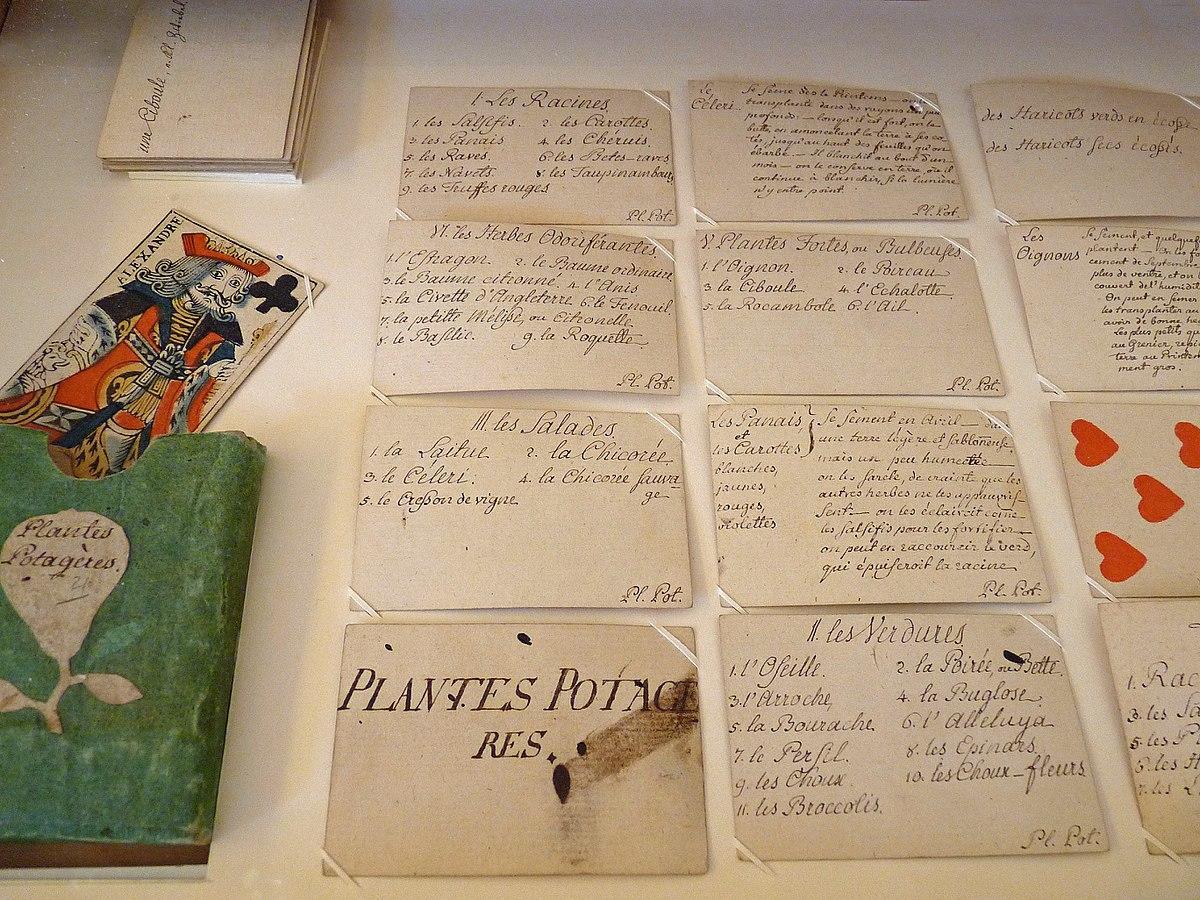 une Ciboule, 
ALEXANDRE
Plantes
Potagères.
I. Les Racines
1. les Salsifis. 2. les Carottes.
3. les Panais 4. les Chéruis.
5. les Raves. 6. les Betes-raves
7. les Navets. 8. les Taupinambours
9. les Truffes rouges
Pl. Pot.
le
Céleri.
Se Sème dès le Printems — on
transplante dans des rayons un peu
profonds: — lorsqu'il est fort, on le
bute, en amoncelant la terre à ses co-
tés, jusqu'au haut des feuilles qu'on
ébarbe — Il blanchit au bout d'un
mois — on le conserve en terre, où il
continue à blanchir, si la lumière
n'y entre point.
Pl. Pot.
des Haricots verds en écosse
des Haricots secs écossés.
VI. les Herbes Odoriférantes.
1. l'Estragon. 2. le Baume ordinaire
3. le Baume citronné 4. l'Anis
5. la Civette d'Angleterre 6. le Fenouil
7. la petitte Mélisse, ou Citronelle
8. le Basilic. 9. la Roquette
Pl. Pot.
V. Plantes Fortes, ou Bulbeuses.
1. l'Oignon. 2. le Poireau
3. la Ciboule 4. l'Echalotte.
5. la Rocambole 6. l'Ail.
Pl. Pot.
Les
Oignons
Se Sèment, et quelquef
plantent — On les
cement de Septembre
plus de ventre, et on
couvert de l'humidité
On peut en semer
les transplanter au
avoir de bonne he
Les plus petits qu
au Grenier,
terre au Printem
ment gros.
III. les Salades.
1. la Laitue 2. la Chicorée
3. le Céleri. 4. la Chicorée sauva-
ge
5. le Cresson de vigne
Pl. Pot.
Les Panais
et
les Carottes
blanches,
jaunes,
rouges,
violettes
Se Sèment en Avril — dans
une terre légère et sabloneuse
mais un peu humectée
on les sarcle, de crainte que les
autres herbes ne les appauvris-
sent — on les éclaircit come
les salsifis pour les fortifier —
on peut en raccourcir le verd,
qui épuiseroit la racine
Pl. Pot.
PLANTES POTAGE
RES.
II. les Verdures
1. l'Oseille. 2. la Poirée, ou Bette.
3. l'Arroche, 4. la Buglose.
5. la Bourache 6. l'Alleluya
7. le Persil. 8. les Epinars,
9. les Choux 10. les Choux-fleurs
11. les Broccolis.
Pl. Pot.
1. Rac
3. les Sa
5. les P
6. les H
7. les L